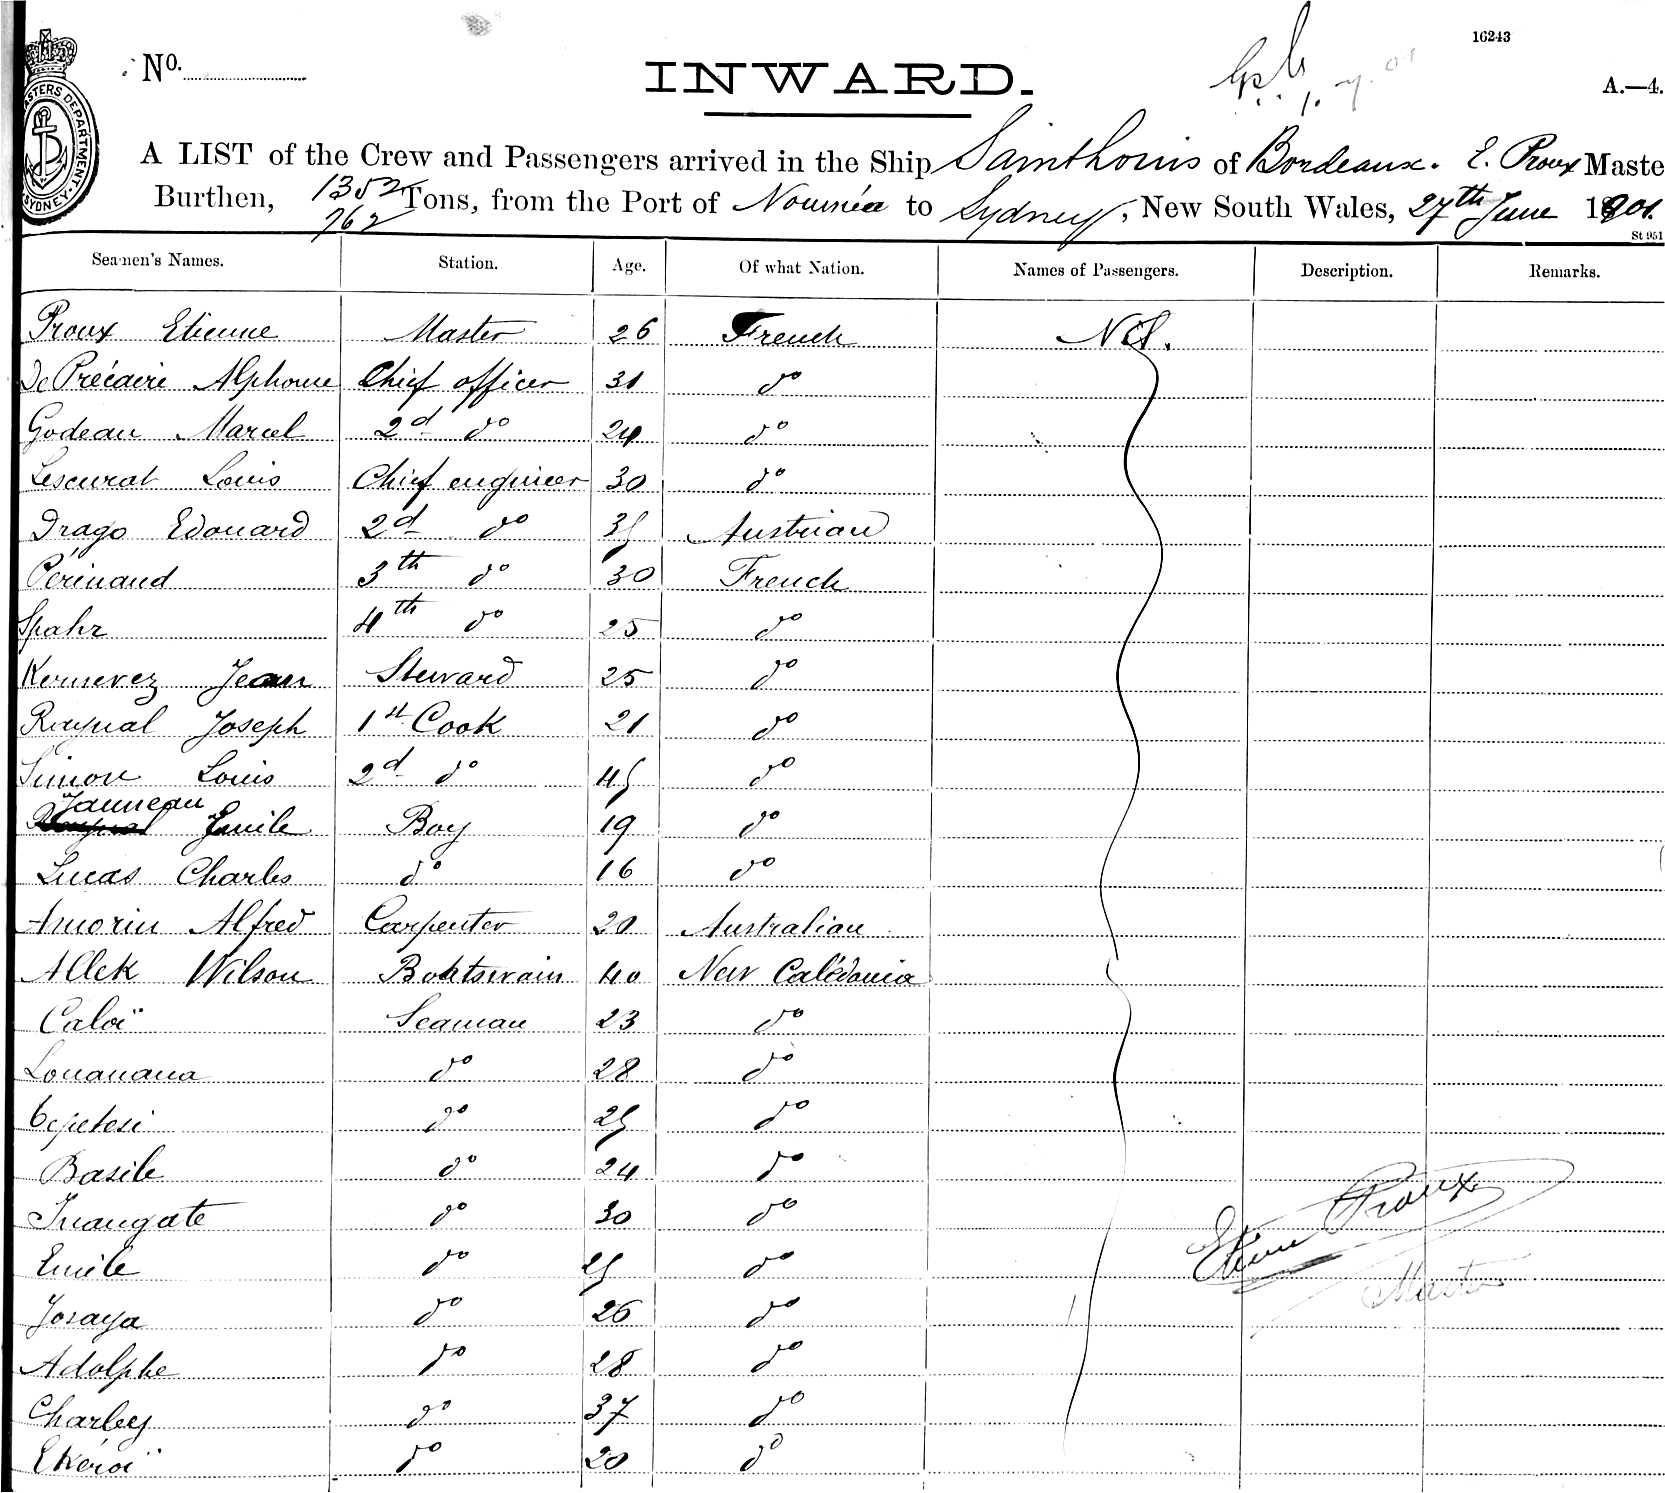 16243
No.
INWARD.
A.—4.
MASTERS DEPARTMENT. SYDNEY.
A LIST of the Crew and Passengers arrived in the Ship Saint Louis of Bordeaux. E. Proux Maste
Burthen, 1352 Tons, from the Port of Nouméa to Sydney, New South Wales, 27th June 1901.
762
St 951
Seamen's Names. Station. Age. Of what Nation. Names of Passengers. Description. Remarks.
Proux Etienne Master 26 French Nil.
De Précaire Alphonse Chief officer 31 do
Godeau Marcel 2d do 24 do
Lescurat Louis Chief engineer 30 do
Drago Edouard 2d do 35 Austrian
Périnaud 3th do 30 French
Spahr 4th do 25 do
Kernevez Jean Steward 25 do
Raynal Joseph 1st Cook 21 do
Simon Louis 2d do 45 do
Janneau
Emile Boy 19 do
Lucas Charles do 16 do
Amorin Alfred Carpenter 20 Australian
Allek Wilson Boatswain 40 New Calédonia
Caloï Seaman 23 do
Louanana do 28 do
do 25 do
Basile do 24 do
Inangate do 30 do
Emile do 25 do
Josaya do 26 do
Adolphe do 28 do
Charley do 37 do
Ekéroï do 20 do
Etienne Proux
Master